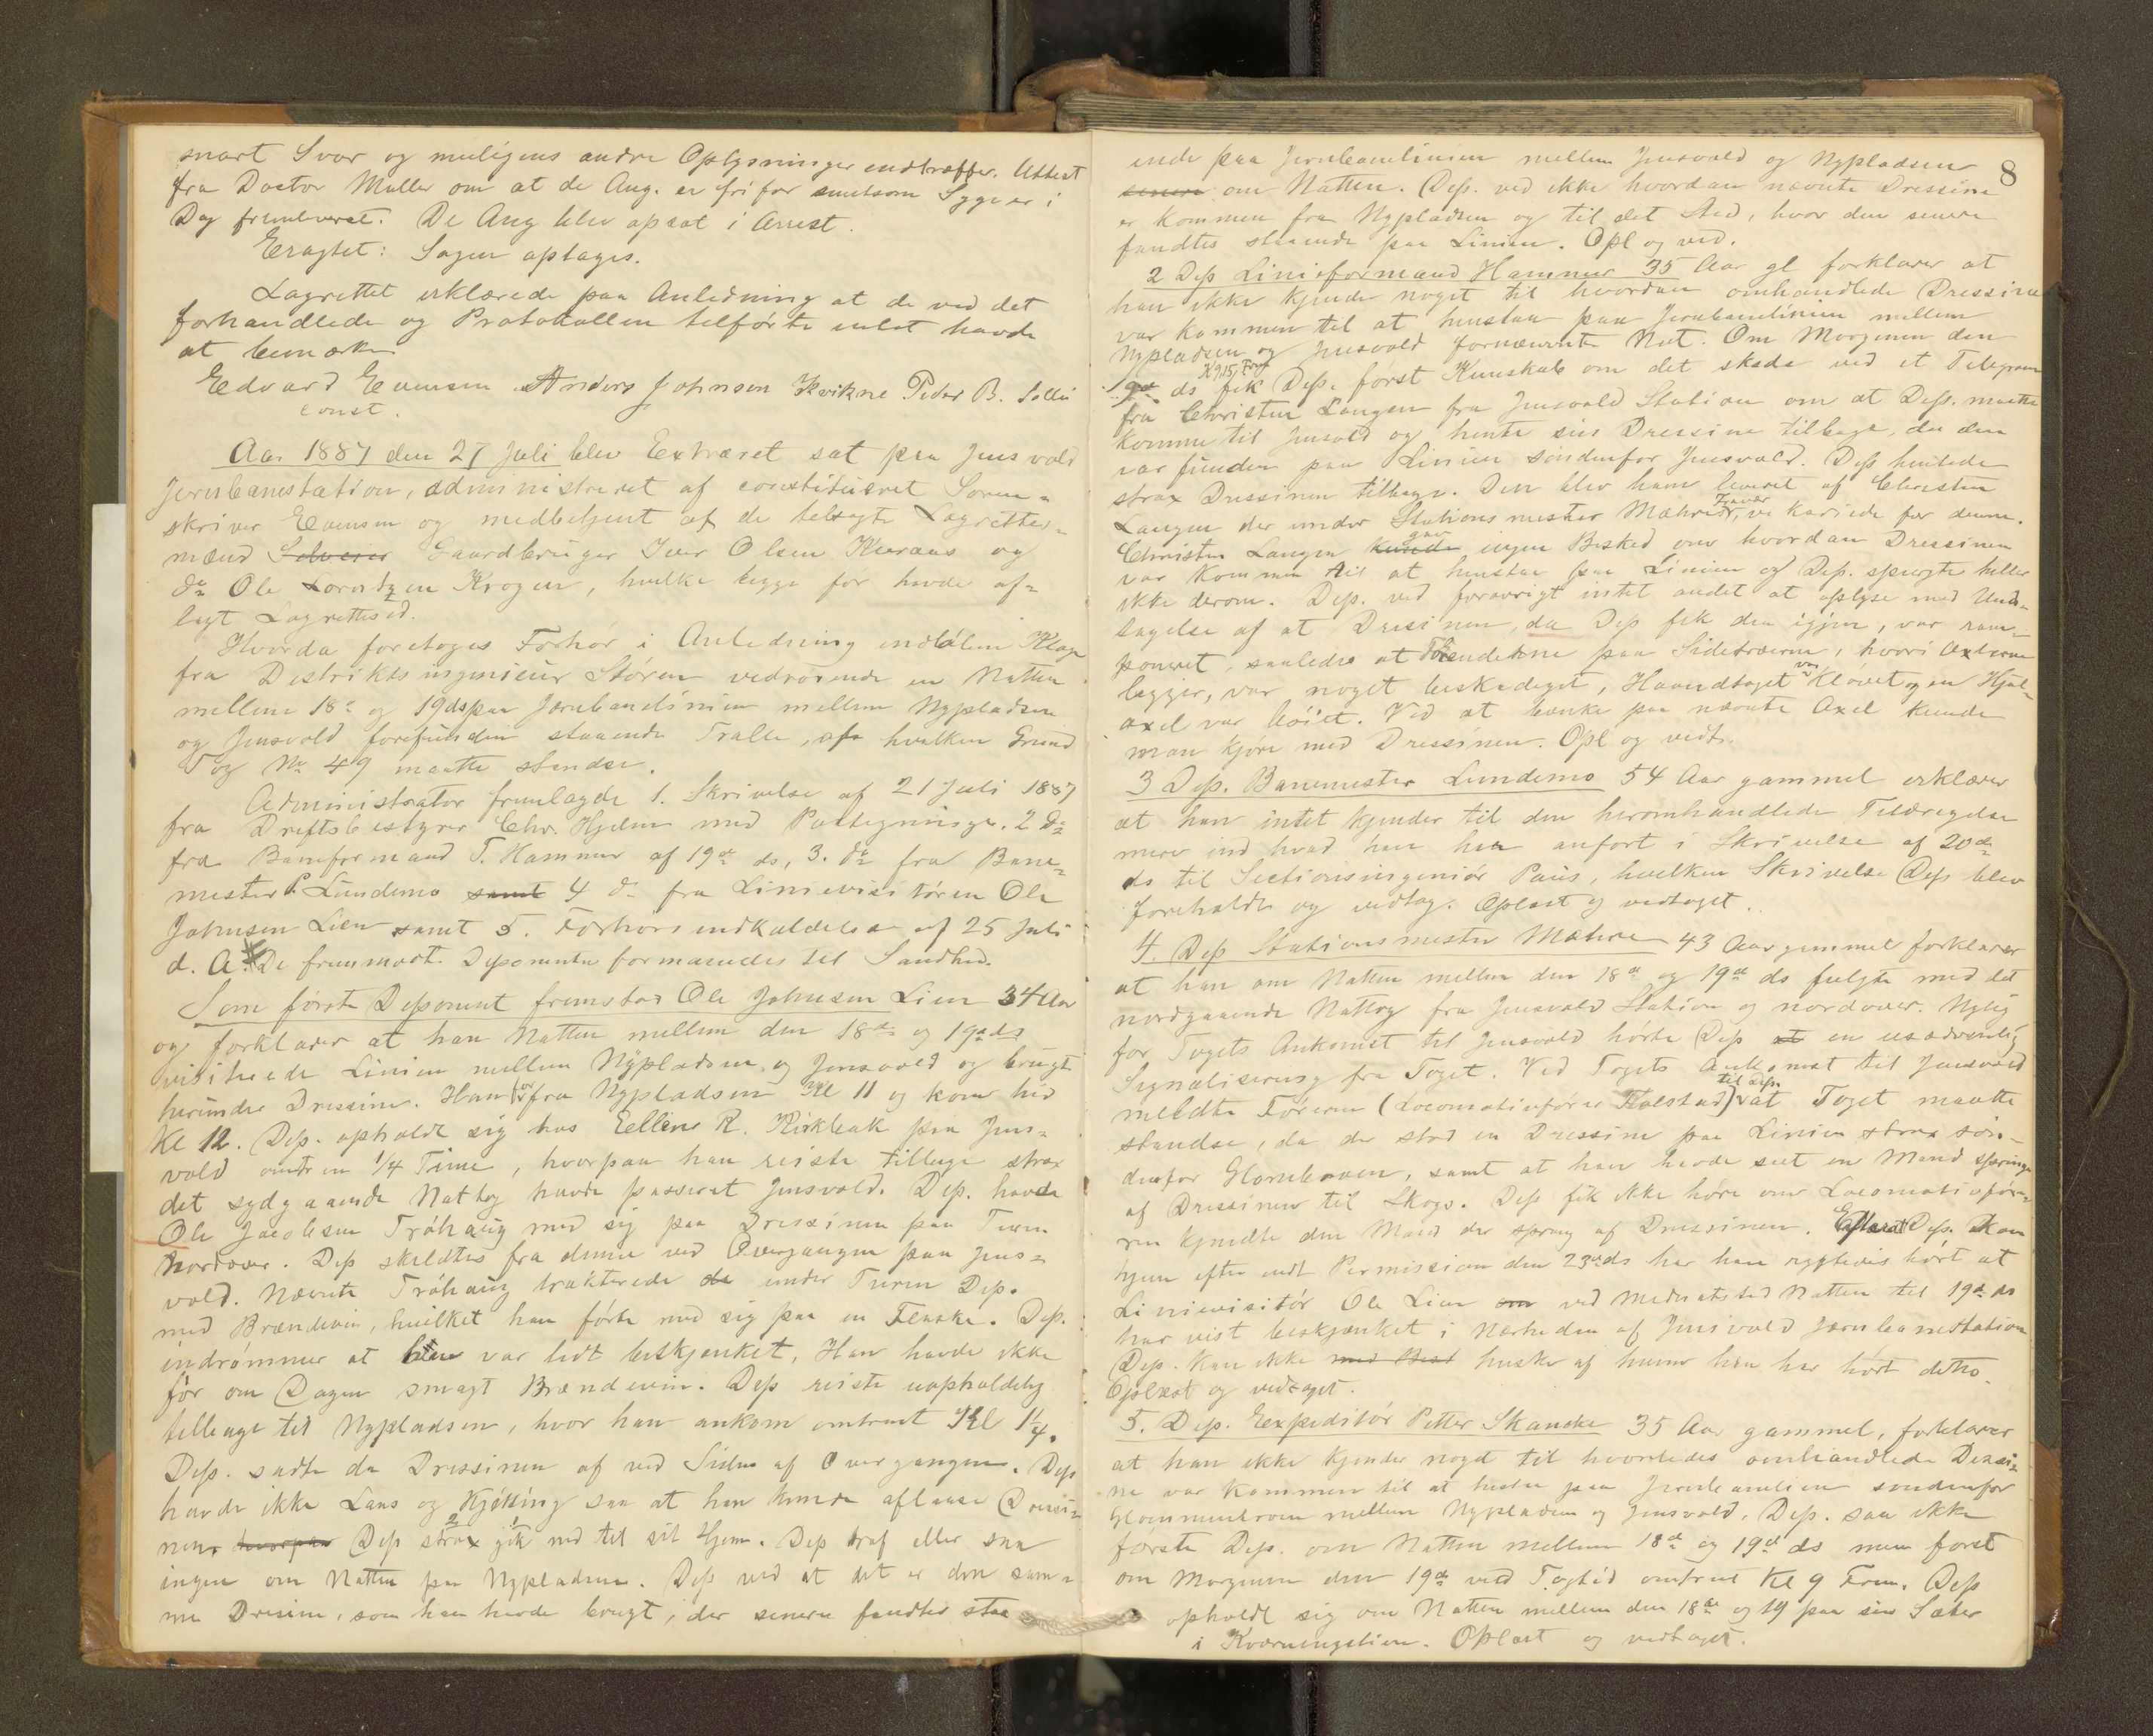 snart Svar og muligens andre Oplysninger indtræffer. Attest
fra Doctor Müller om at de Ang. er fri for smitsom Syge er i
Dag fremleveret. De Ang blev opsat i Arrest.
Eragtet: Sagen optages.
Lagrettet erklærede paa Anledning at de ved det
forhandlede og Protokollen tilførte intet havde
at bemærke.
Edvard Evensen Anders Johnsen Kvikne Peder B. Sollie
const.
Aar 1887 den 27 Juli blev Extraret sat paa Jensvold
Jernbanestation, administreret af constitueret Soren-
skriver Evensen og medbetjent af de tilsagte Lagrettes-
mænd Gaardbruger Iver Olsen Kuraas og
do Ole Lorntzen Krogen, hvilke begge før havde af-
lagt Lagrettesed.
Hvorda foretoges Forhør i Anledning indløben Klage
fra Distriktsingeniør Støren vedrørende en Natten
mellem 18de og 19 ds paa Jernbanelinien mellem Nypladsen
og Jensvold forefunden staaende Tralle, af hvilken Grund
Tog No 49 maatte standse.
Administrator fremlagde 1. Skrivelse af 21 Juli 1887
fra Driftsbestyrer Chr. Hjelm med Paategninger. 2 do
fra Baneformand T. Hammer af 19de ds, 3. do fra Bane-
mester P. Lundemo samt 4 do fra Linievisitøren Ole
Johnsen Lien samt 5. Forhørsindkaldelse af 25 Juli
d. A. De fremmødte Deponenter formanedes til Sandhed.
Som første Deponent fremstod Ole Johnsen Lien 34 Aar
og forklarer at han Natten mellem den 18de og 19de ds
visiterede Linien mellem Nypladsen og Jensvold og brugte
herunder Dressine. Han for fra Nypladsen Kl 11 og kom hid
Kl 12. Dep. opholdt sig hos Elling R. Kirkbak paa Jens-
vold omtr en 1/4 Time, hvorpaa han reiste tilbage strax
det sydgaaende Nattog havde passeret Jensvold. Dep. havde
Ole Jacobsen Trøhaug med sig paa Dressinen paa Turen
nordover. Dep skildtes fra denne ved Overgangen paa Jens-
vold. Nævnte Trøhaug trakterede de under Turen Dep.
med Brændevin, hvilket han førte med sig paa en Flaske. Dep.
indrømmer at han var lidt beskjænket. Han havde ikke
før om Dagen smagt Brændevin. Dep reiste uopholdelig
tilbage til Nypladsen, hvor han ankom omtrent Kl 1 1/4.
Dep. satte da Dressinen af ved Siden af Overgangen. Dep
havde ikke Laas og Kjetting saa at han kunde aflaase Dressi-
nen, hvorpaa Dep strax gik ned til sit Hjem. Dep traf eller saa
ingen om Natten paa Nypladsen. Dep ved at det er den sam-
me Dresine, som han havde brugt, der senere fandtes staa
8
ende paa Jernbanelinien mellem Jensvold og Nypladsen
senere om Natten. Dep. ved ikke hvordan nævnte Dressine
er kommen fra Nypladsen og til det Sted, hvor den senere
fandtes staaende paa Linien. Opl og ved.
2 Dep Linieformand Hammer 35 Aar gl forklarer at
han ikke kjender noget til hvordan omhandlede Dressine
var kommen til at henstaa paa Jernbanelinien mellem
Nypladsen og Jensvold fornævnte Nat. Om Morgenen den
Kl 9,15, Form
19de ds fik Dep. først Kundskab om det skede ved et Telegram
fra Christen Langen fra Jensvold Station om at Dep. maatte
komme til Jensvold og hente sin Dressine tilbage, da den
var funden paa Linien søndenfor Jensvold. Dep hentede
strax Dressinen tilbage. Den blev ham leveret af Christen
Langen der under Stationsmester Mæhres Fravær vikarierede for denne.
gav
Christen Langen kunde ingen Besked om hvordan Dressinen
var kommen til at henstaa paa Linien og Dep. spurgte heller
ikke derom. Dep. ved forøvrigt intet andet at oplyse med Und-
tagelse af at Dresinen, da Dep fik den igjen, var ram-
poneret, saaledes at Enderne paa Sidetræerne, hvori Axlerne
ligger, var noget beskadiget, Haandtaget var kløvet og en Hjul-
axel var bøiet. Ved at banke paa nævnte Axel kunde
man kjøre med Dressinen. Opl og vedt.
3 Dep. Banemester Lundemo 54 Aar gammel erklærer
at han intet kjender til den heromhandlede Tildragelse
mere end hvad han har anført i Skrivelse af 20de
ds til Sectionsingeniør Paus, hvilken Skrivelse Dep blev
foreholdt og vedtog. Oplæst og vedtaget.
4. Dep Stationsmester Mæhre 43 Aar gammel forklarer
at han om Natten mellem den 18de og 19de ds fulgte med det
nordgaaende Nattog fra Jensvold Station og nordover. Nylig
før Togets Ankomst til Jensvold hørte Dep at en usædvanlig
Signalisering fra Toget. Ved Togets Ankomst til Jensvold
til Dep.
meldte Føreren (Locomotivfører Hulstad) at Toget maatte
standse, da der stod en Dressine paa Linien strax søn-
denfor Glombroen, samt at han havde seet en Mand springe
af Dressinen til Skogs. Dep fik ikke høre om Locomotivføre-
ren kjendte den Mand der sprang af Dressinen. Efterat Dep. kom
hjem efter endt Permission den 23de ds har han rygtevis hørt at
Linievisitør Ole Lien om ved Midnatstid Natten til 19de ds
har vist beskjænket i Nærheden af Jensvold Jernbanestation
Dep. kan ikke med Best huske af hvem han har hørt dette.
Oplæst og vedtaget.
5. Dep. Expeditør Petter Skancke 35 Aar gammel, forklarer
at han ikke kjender noget til hvorledes omhandlede Dressi-
ne var kommen til at henstaa paa Jernbanelinien søndenfor
Glommenbroen mellem Nypladsen og Jensvold. Dep. saa ikke
første Dep. om Natten mellem 18de og 19de ds men først
om Morgenen den 19de ved Togtid omtrent Kl 9 Form. Dep
opholdt sig om Natten mellem den 18de og 19 paa sin Sæter
i Kværningslien. Oplæst og vedtaget.